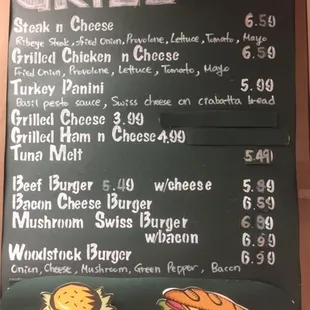 GRILL
Steak n Cheese 6.59
Ribeye Steak, Fried Onion, Provolone, Lettuce, Tomato, Mayo
Grilled Chicken n Cheese 6.59
Fried Onion, Provolone, Lettuce, Tomato, Mayo
Turkey Panini 5.99
Basil pesto sauce, Swiss cheese on ciabatta bread
Grilled Cheese 3.99
Grilled Ham n Cheese 4.99
Tuna Melt 5.49
Beef Burger 5.49 w/cheese 5.89
Bacon Cheese Burger 6.59
Mushroom Swiss Burger 6.89
w/bacon 6.99
Woodstock Burger 6.99
Onion, Cheese, Mushroom, Green Pepper, Bacon